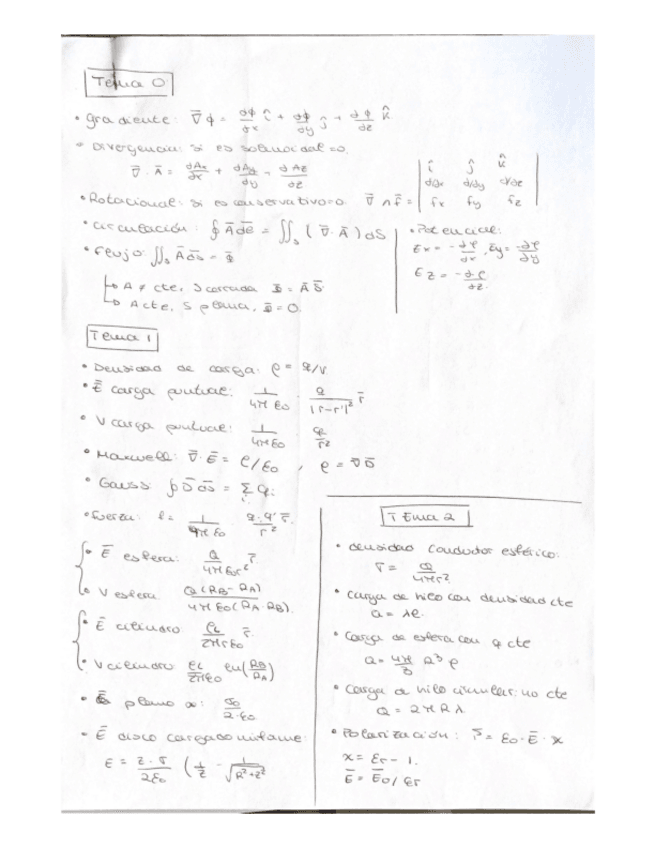 Tema 0
• gradiente: ∇̄φ = ∂φ/∂x î + ∂φ/∂y ĵ + ∂φ/∂z k̂
• Divergencia: si es solenoidal = 0.
∇̄ · Ā = ∂Ax/∂x + ∂Ay/∂y + ∂Az/∂z
• Rotacional: si es conservativo = 0. ∇̄ ∧ f̄ = | î ĵ k̂ |
| d/dx d/dy d/dz |
| fx fy fz |
• circulación: ∮ Ā dl̄ = ∬s (∇̄ · Ā) dS
• flujo: ∬s Ā ds̄ = Φ̄
↳ A ≠ cte, S cerrada Φ = Ā S̄
↳ A cte, S plana, Φ̄ = 0.
• Potencial:
Ex = -dφ/dx, Ey = -dφ/dy
Ez = -dφ/dz.
Tema 1
• Densidad de carga: ρ = Q/V
• Ē carga puntual: 1/4πε0 · Q/|r-r'|² r̄
• V carga puntual: 1/4πε0 · Q/r²
• Maxwell: ∇̄ · Ē = ρ/ε0 , ρ = ∇̄ D̄
• Gauss: ∮ D̄ ds̄ = Σi qi
• fuerza: f = 1/4πε0 q·q'/r² r̄.
• Ē esfera: Q/4πε0r² r̄
• V esfera: Q(RB-RA)/4πε0(RA·RB).
• Ē cilindro: ρL/2πrε0 r̄.
• V cilindro: ρL/2πε0 ln(RB/RA)
• Ē plano ∞: σ0/2·ε0
• Ē disco cargado uniforme:
E = z·σ/2ε0 (1/z - 1/√(R²+z²)
Tema 2
• densidad conductor esférico:
σ = Q/4πr²
• Carga de hilo con densidad cte
Q = λl.
• Carga de esfera con ρ cte
Q = 4π/3 R³ ρ
• Carga de hilo circular: no cte
Q = 2πRλ.
• Polarización: P̄ = ε0 · Ē · x
x = εr - 1.
Ē = Ē0/εr